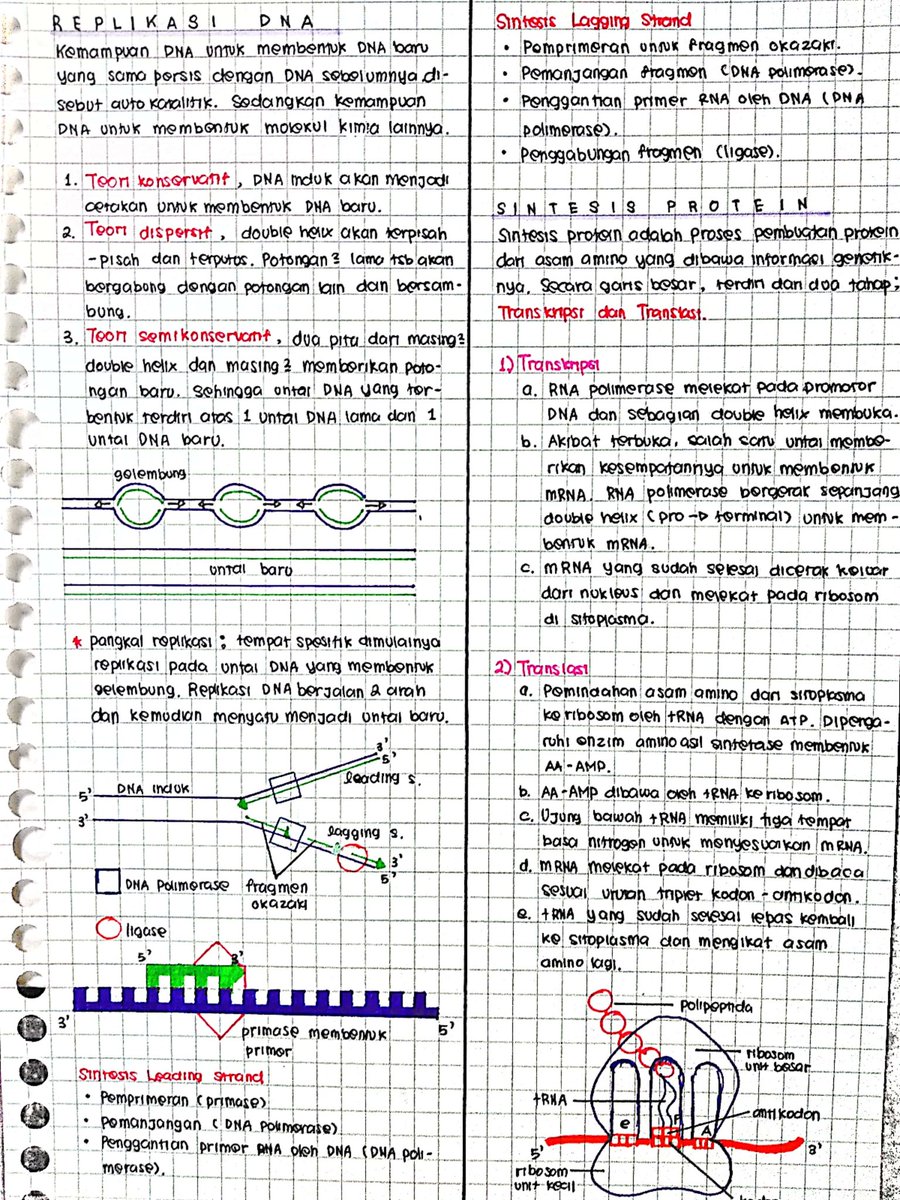 REPLIKASI DNA
Kemampuan DNA untuk membentuk DNA baru
yang sama persis dengan DNA sebelumnya di-
sebut auto katalitik. Sedangkan kemampuan
DNA untuk membentuk molekul kimia lainnya.
1. Teori konservatif, DNA induk akan menjadi
cetakan untuk membentuk DNA baru.
2. Teori dispersif, double helix akan terpisah
-pisah dan terputus. Potongan2 lama tsb akan
bergabung dengan potongan lain dan bersam-
bung.
3. Teori semikonservatif, dua pita dari masing2
double helix dan masing2 memberikan poto-
ngan baru. Sehingga untai DNA yang ter-
bentuk terdiri atas 1 untai DNA lama dan 1
untai DNA baru.
gelembung
untai baru
* pangkal replikasi : tempat spesifik dimulainya
replikasi pada untai DNA yang membentuk
gelembung. Replikasi DNA berjalan 2 arah
dan kemudian menyatu menjadi untai baru.
3'
5'
leading s.
5'
DNA induk
3'
lagging s.
3'
5'
DNA Polimerase
fragmen
okazaki
ligase
5'
3'
3'
5'
primase membentuk
primer
Sintesis Leading Strand
• Pemprimeran (primase)
• Pemanjangan (DNA Polimerase)
• Penggantian primer RNA oleh DNA (DNA poli-
merase).
Sintesis Lagging Strand
• Pemprimeran untuk fragmen okazaki.
• Pemanjangan fragmen (DNA polimerase).
• Penggantian primer RNA oleh DNA (DNA
polimerase).
• Penggabungan fragmen (ligase).
SINTESIS PROTEIN
Sintesis protein adalah proses pembuatan protein
dari asam amino yang dibawa informasi genetik-
nya. Secara garis besar, terdiri dari dua tahap;
Transkripsi dan Translasi.
1) Transkripsi
a. RNA polimerase melekat pada promotor
DNA dan sebagian double helix membuka.
b. Akibat terbuka, salah satu untai membe-
rikan kesempatannya untuk membentuk
mRNA. RNA polimerase bergerak sepanjang
double helix (pro → terminal) untuk mem-
bentuk mRNA.
c. mRNA yang sudah selesai dicetak keluar
dari nukleus dan melekat pada ribosom
di sitoplasma.
2) Translasi
a. Pemindahan asam amino dari sitoplasma
ke ribosom oleh tRNA dengan ATP. Dipenga-
ruhi enzim amino asil sintetase membentuk
AA-AMP.
b. AA-AMP dibawa oleh tRNA ke ribosom.
c. Ujung bawah tRNA memiliki tiga tempat
basa nitrogen untuk menyesuaikan mRNA.
d. mRNA melekat pada ribosom dan dibaca
sesuai urutan triplet kodon-antikodon.
e. tRNA yang sudah selesai lepas kembali
ke sitoplasma dan mengikat asam
amino lagi.
polipeptida
ribosom
unit besar
tRNA
antikodon
e
P
A
5'
3'
ribosom
unit kecil